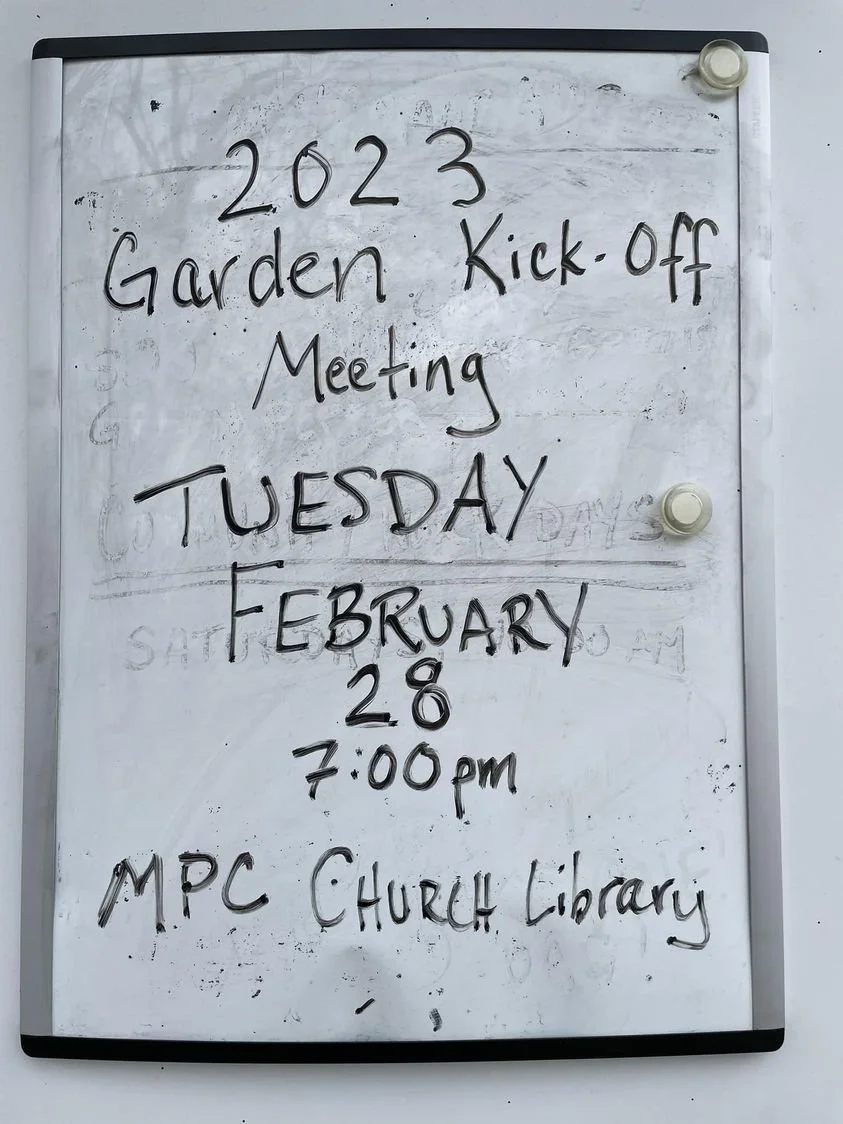 2023
Garden Kick-Off
Meeting
TUESDAY
FEBRUARY
28
7:00pm
MPC CHURCH Library